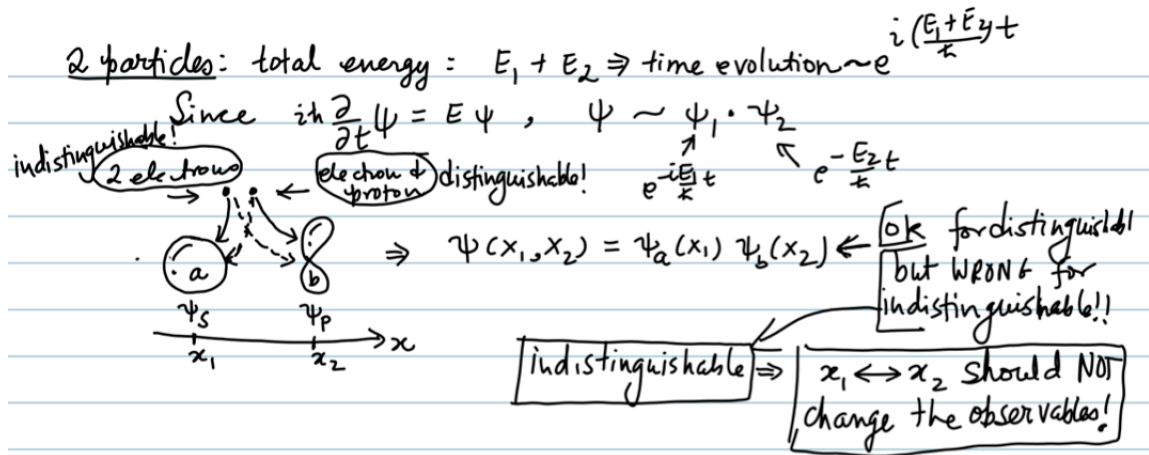 2 particles: total energy: E₁ + E₂ ⇒ time evolution ~ e^{i(E₁+E₂)t/ħ}
Since iħ ∂/∂t ψ = E ψ, ψ ~ ψ₁ · ψ₂
indistinguishable!
2 electrons
electron & proton
distinguishable!
e^{-i E₁/ħ t}
e^{-E₂/ħ t}
a
b
⇒ ψ(x₁, x₂) = ψ_a(x₁) ψ_b(x₂) ←
ok for distinguishabl
but WRONG for
indistinguishable!!
ψ_S
ψ_P
x₁
x₂
x
indistinguishable ⇒
x₁ ↔ x₂ should NOT
change the observables!